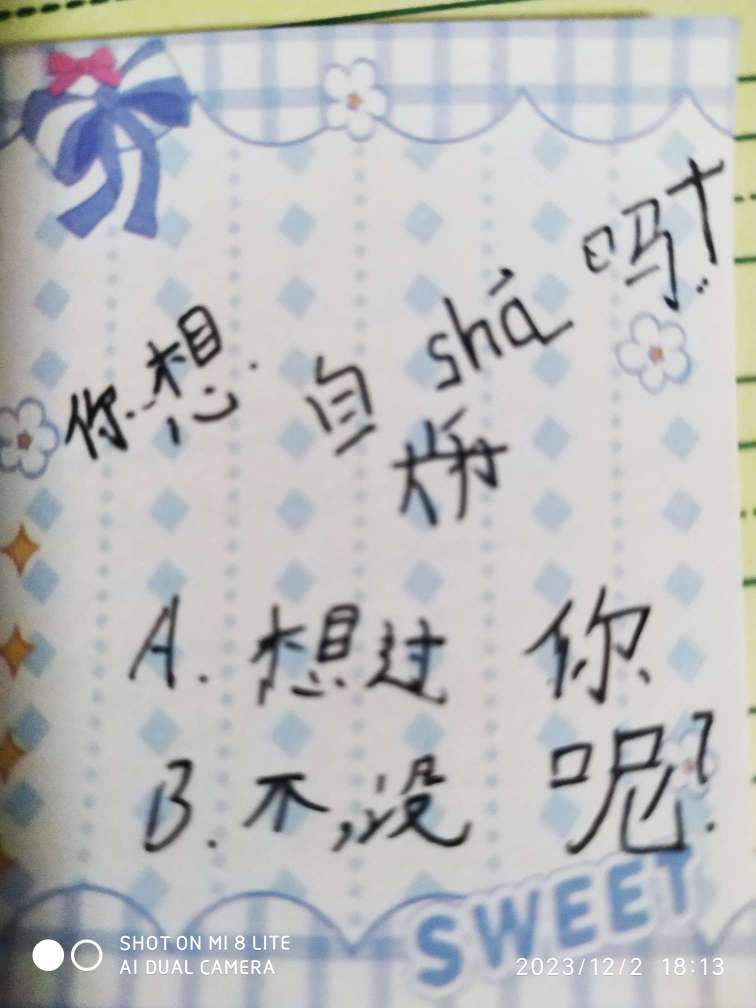 你想自shā吗!
A. 想过 你
B. 不,没 呢?
SWEET
SHOT ON MI 8 LITE
AI DUAL CAMERA
2023/12/2 18:13